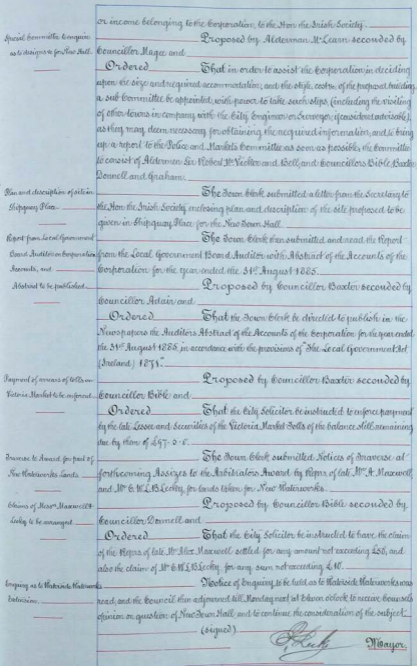 or income belonging to the Corporation, to the Hon. the Irish Society.
Special Committee to enquire
as to designs &c for New Hall.
Proposed by Alderman McLearn seconded by
Councillor Magee and
Ordered That in order to assist the Corporation in deciding
upon the size and required accommodation, and the style, cost &c of the proposed building
a sub Committee be appointed, with power to take such steps (including the visiting
of other towns in company with the City Engineer or Surveyor, if considered advisable),
as they may deem necessary for obtaining the required information, and to bring
up a report to the Police and Markets Committee as soon as possible, the Committee
to consist of Alderman Sir Robert McVicker and Bell, and Councillors Bible, Baxter
Donnell and Graham.
Plan and description of site in
Shipquay Place
The Town Clerk submitted a letter from the Secretary to
the Hon. the Irish Society enclosing plan and description of the site proposed to be
given in Shipquay Place for the New Town Hall.
Report from Local Government
Board Auditor on Corporation
Accounts, and
The Town Clerk then submitted and read the Report
from the Local Government Board Auditor with Abstract of the Accounts of the
Corporation for the year ended the 31st August 1885.
Abstract to be published.
Proposed by Councillor Baxter seconded by
Councillor Adair and
Ordered That the Town Clerk be directed to publish in the
Newspapers the Auditors Abstract of the Accounts of the Corporation for the year ended
the 31st August 1885 in accordance with the provisions of "The Local Government Act
(Ireland) 1871."
Payment of arrears of tolls
Victoria Market to be enforced
Proposed by Councillor Baxter seconded by
Councillor Bible and
Ordered That the City Solicitor be instructed to enforce payment
by the late Lessee and Securities of the Victoria Market Tolls of the balance still remaining
due by them of £97.
Traverse to Award for part of
New Waterworks Lands
The Town Clerk submitted Notices of Traverse at
forthcoming Assizes to the Arbitrators Award by Repve of late Mr A. Maxwell,
and Mr C. W. L. B. Lecky, for lands taken for New Waterworks.
Claims of Messrs Maxwell &
Lecky to be arranged
Proposed by Councillor Bible seconded by
Councillor Donnell and
Ordered That the City Solicitor be instructed to have the claim
of the Repves of late Mr Alex. Maxwell settled for any amount not exceeding £50, and
also the claim of Mr C. W. L. B. Lecky, for any sum not exceeding £40.
Enquiry as to Waterside Waterworks
Notice of Enquiry to be held as to Waterside Waterworks was
read, and the Council then adjourned till Monday next at Eleven o'clock to receive Counsels
opinion on question of New Town Hall, and to continue the consideration of the subject.
(signed)
Lecky Mayor.